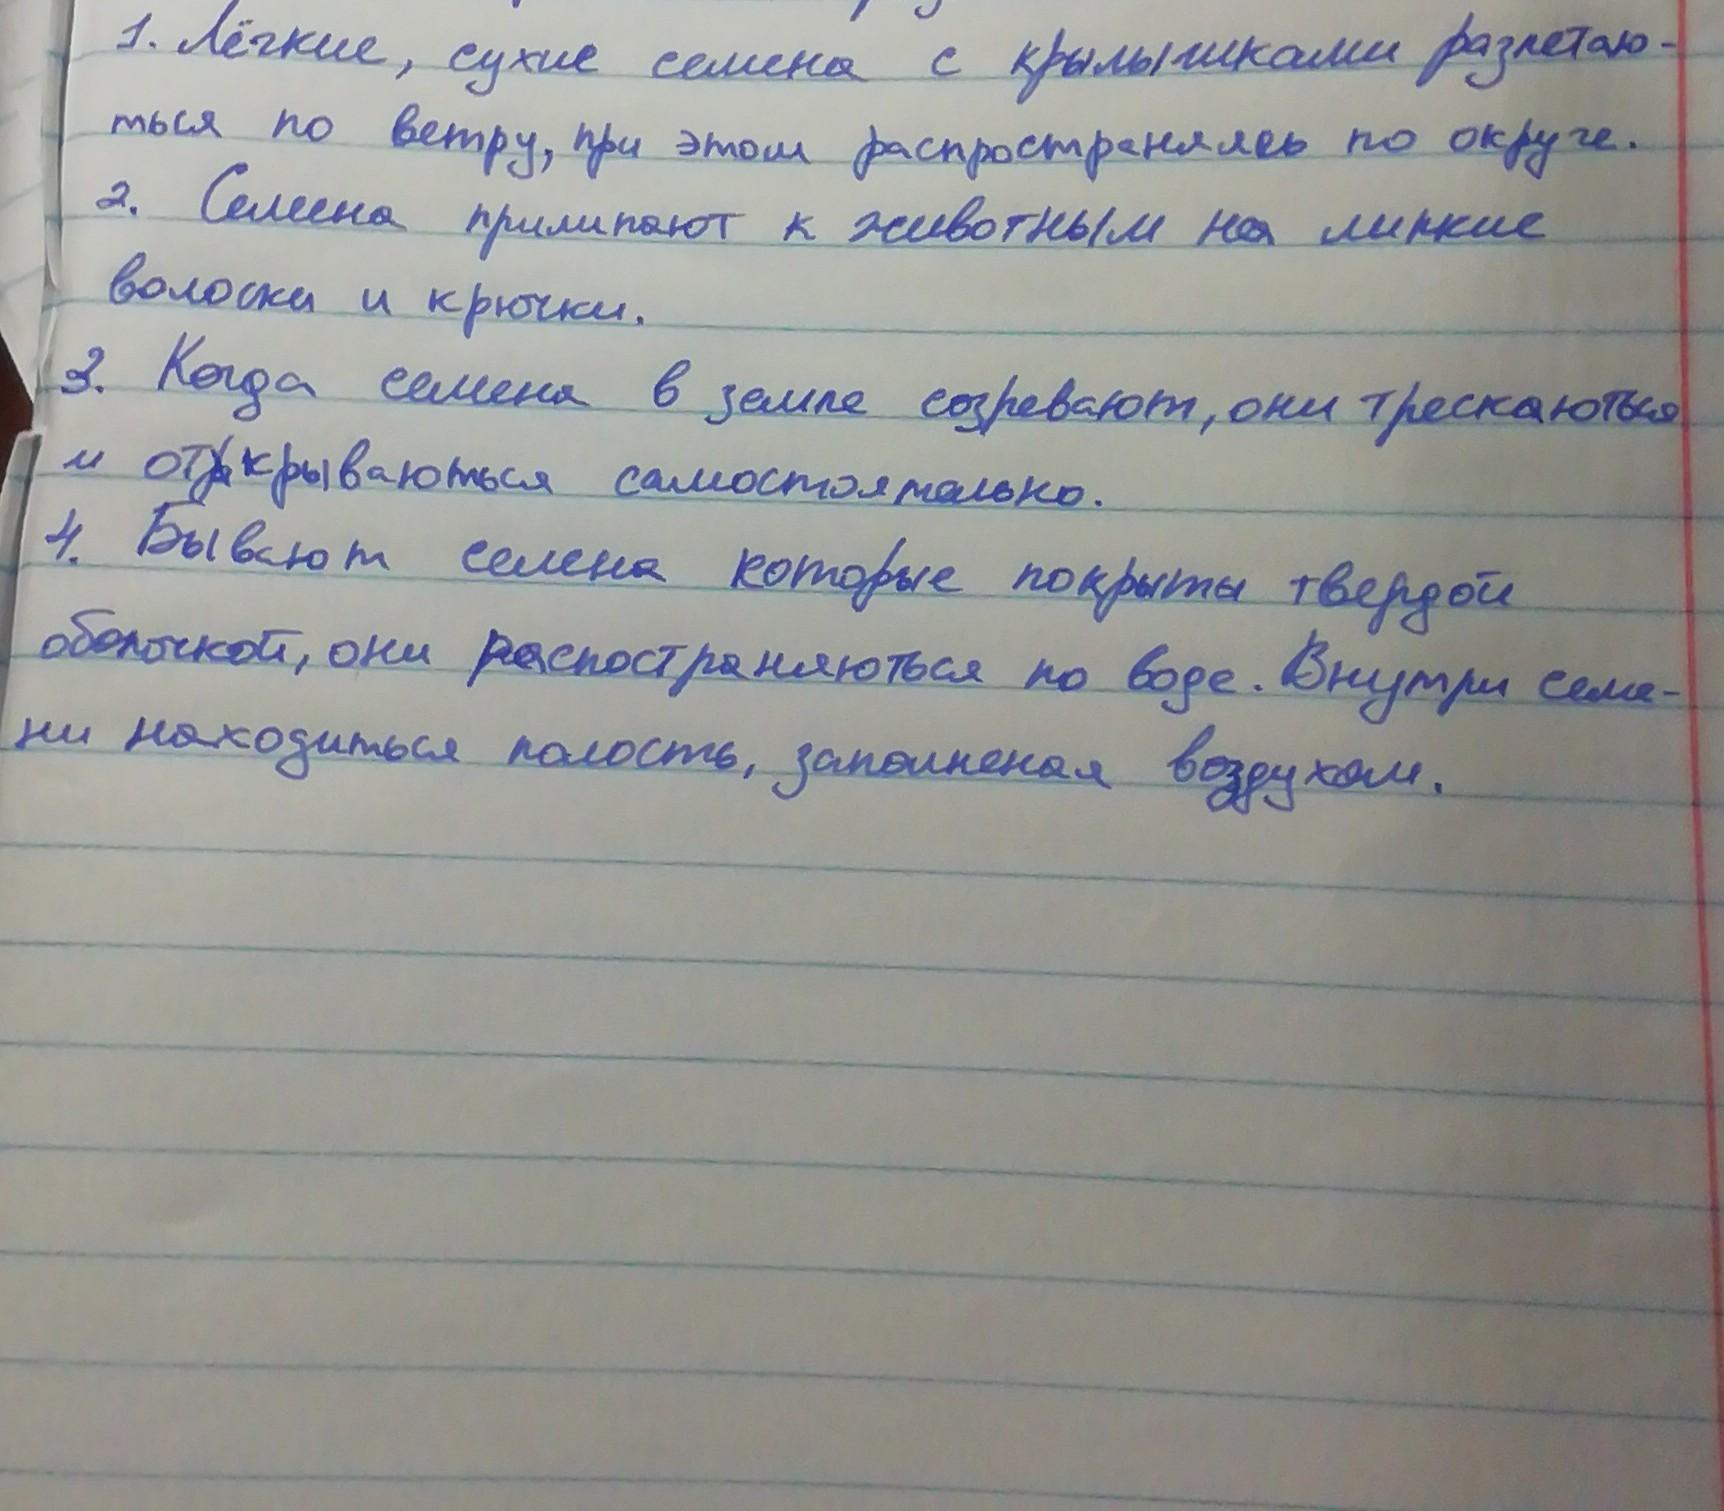 1. Лёгкие, сухие семена с крылышками разлетаю-
ться по ветру, при этом распространяясь по округе.
2. Семена прилипают к животным на липкие
волоски и крючки.
3. Когда семена в земле созревают, они трескаються
и открываються самостоятельно.
4. Бывают семена которые покрыты твердой
оболочкой, они распостраняються по воде. Внутри семе-
ни находиться полость, заполненая воздухом.